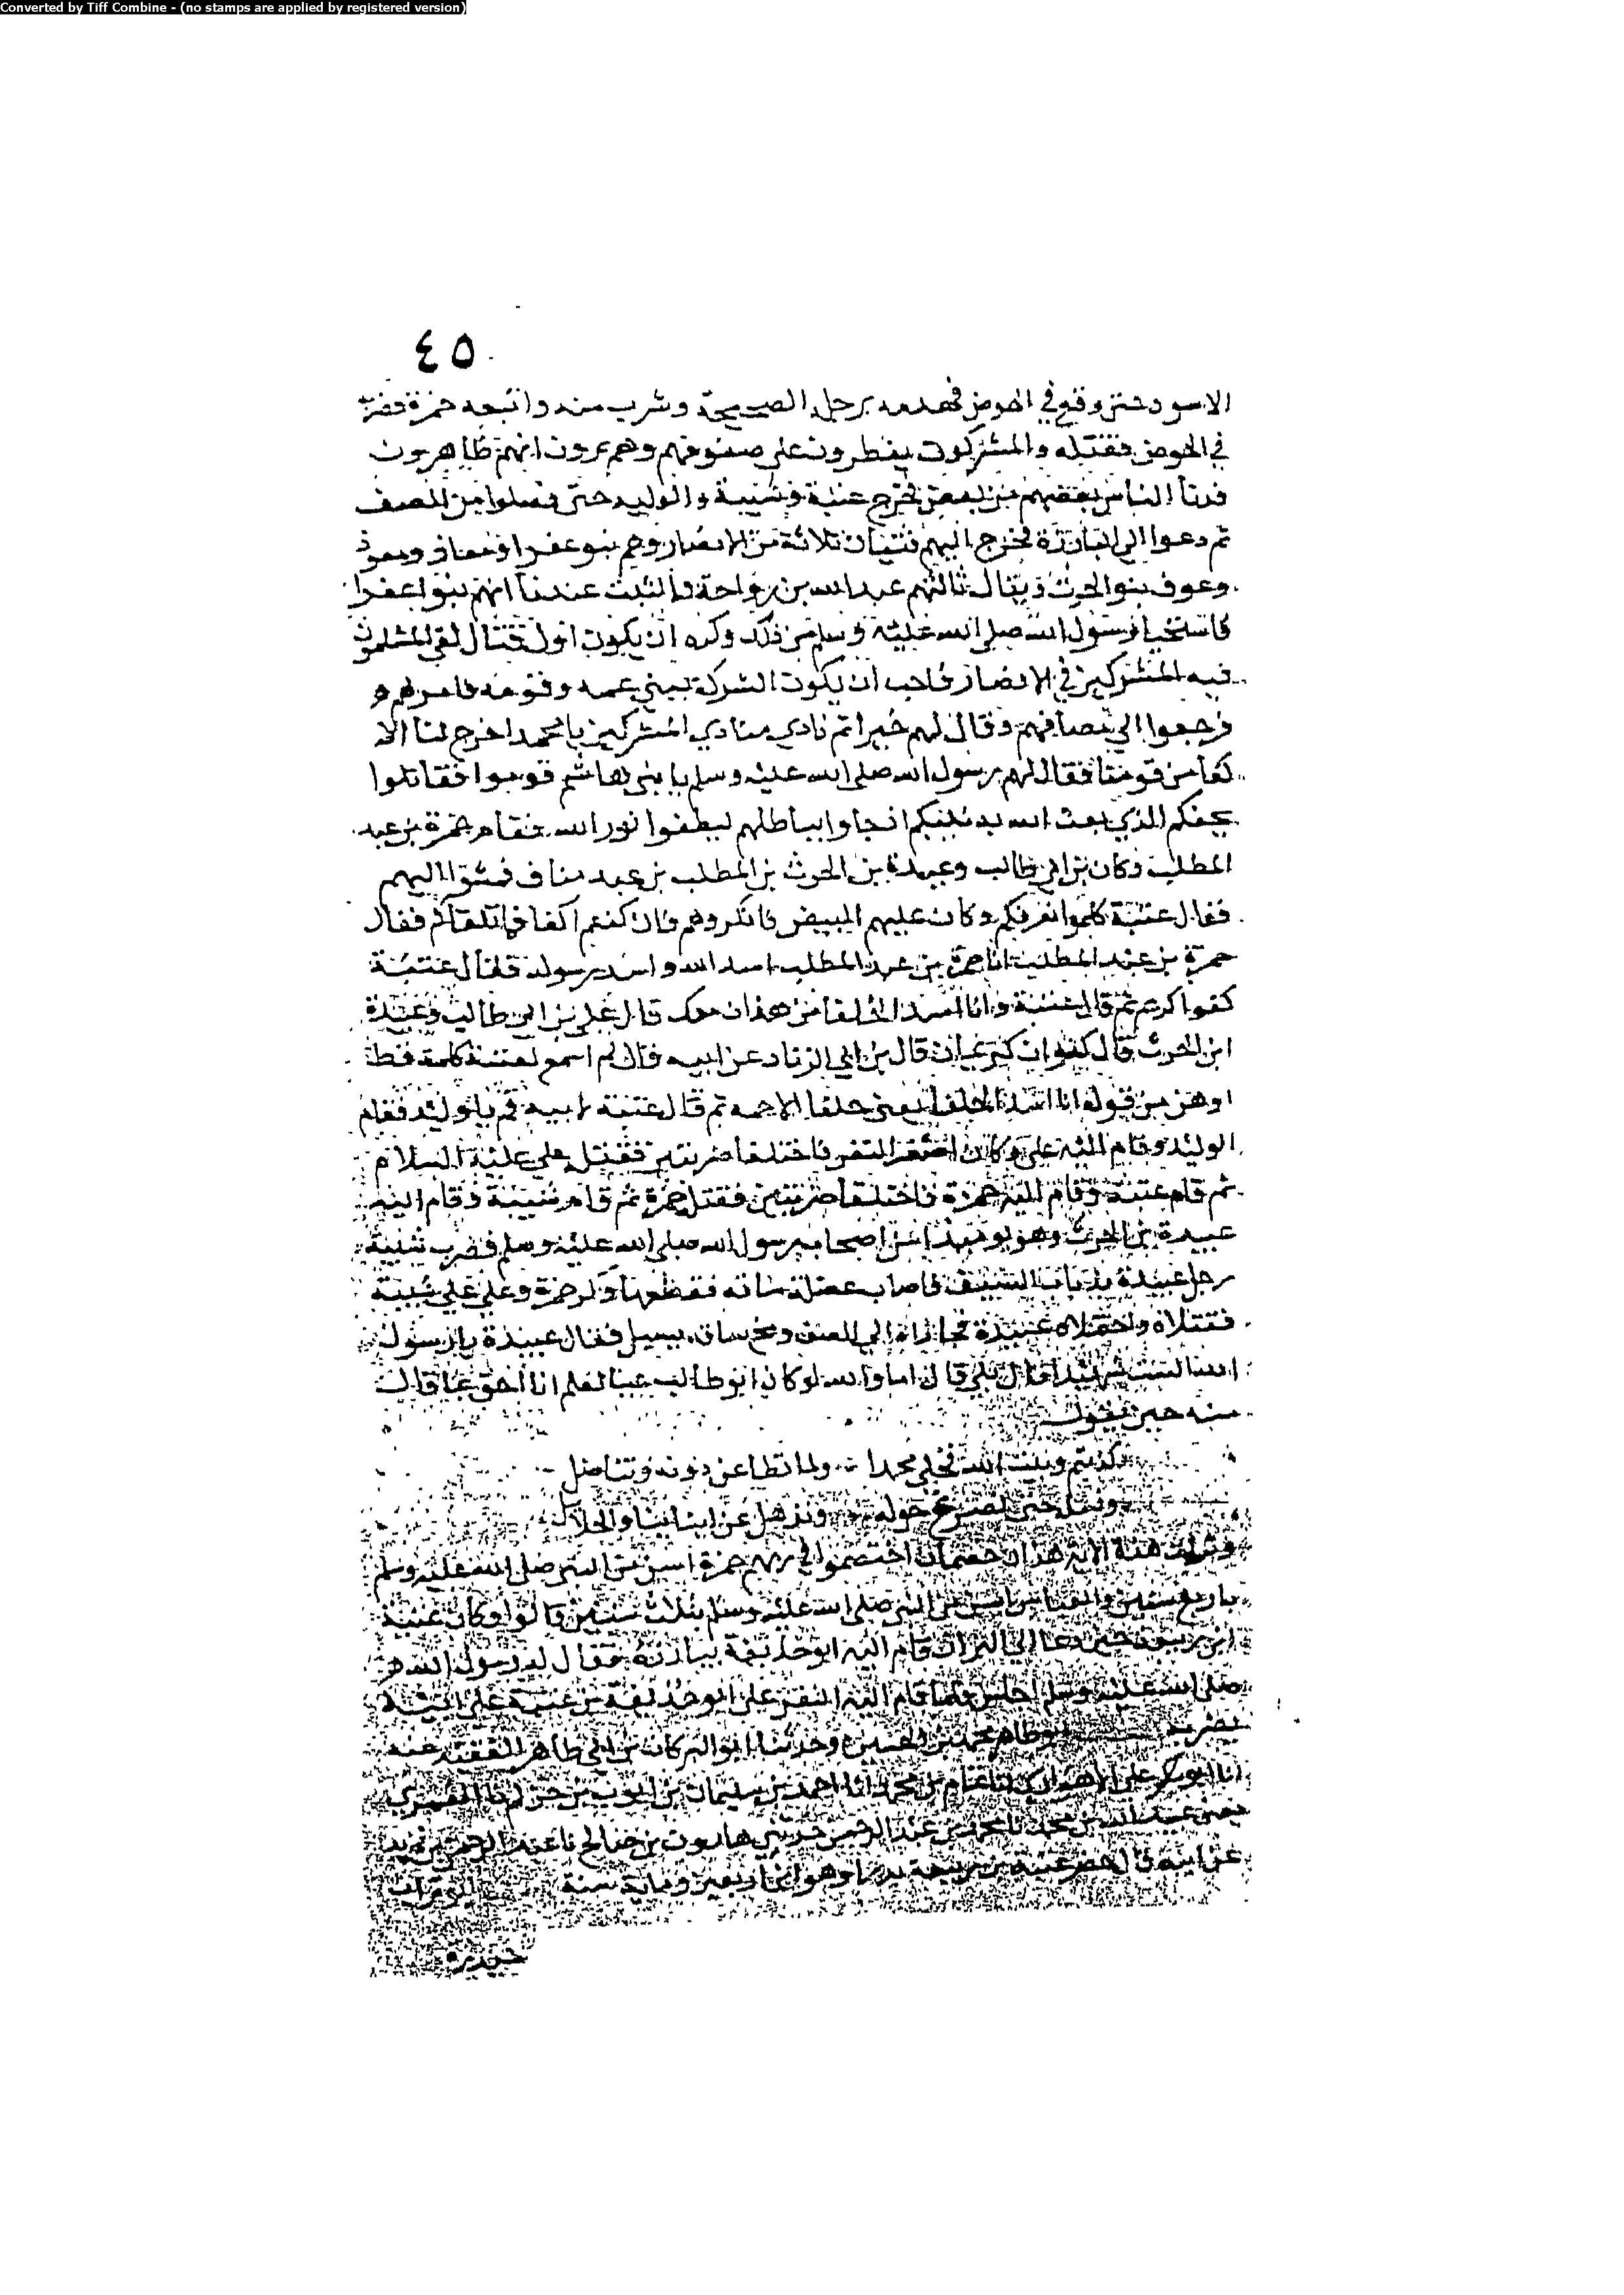 Converted by Tiff Combine - (no stamps are applied by registered version)
٤٥
الاسود حتى وقع في الحوض فهدمه برجله الصحيحة وشرب منه واتبعه حمزة فضربه
في الحوض فقتله والمشركون ينظرون على صفوفهم وهم يرون انهم ظاهرون
فدنا الناس بعضهم من بعض فخرج عتبة وشيبة والوليد حتى فصلوا من الصف
ثم دعوا الى المبارزة فخرج اليهم فتيان ثلاثة من الانصار وهم بنو عفرا معاذ ومعوذ
وعوف بنو الحرث ويقال ثالثهم عبد الله بن رواحة والثبت عندنا انهم بنوا عفرا
فاستحيا رسول الله صلى الله عليه وسلم من ذلك وكره ان يكون اول قتال لقى المسلمون
فيه المشركين في الانصار فاحب ان يكون الشركة ببني عمه وقومه فامرهم
فرجعوا الى مصافهم وقال لهم خيرا ثم نادي منادي المشركين يا محمد اخرج لنا الا
كفا من قومنا فقال لهم رسول الله صلى الله عليه وسلم يا بني هاشم قوموا فقاتلوا
بحقكم الذي بعث الله به نبيكم اذ جاوا بباطلهم ليطفوا نور الله فقام حمزة بن عبد
المطلب وكان بن ابي طالب وعبيدة بن الحرث بن المطلب بن عبد مناف فمشوا اليهم
فقال عتبة كلموا نعرفكم وكان عليهم البيض فانكروهم فان كنتم اكفا قاتلناكم فقال
حمزة بن عبد المطلب انا حمزة بن عبد المطلب اسد الله واسد رسوله فقال عتبة
كفوا كريم ثم قال عتبة وانا اسد الحلفا من هذان معك قال علي بن ابي طالب وعبيدة
ابن الحرث قال كفوان كريمان قال بن ابي الزناد عن ابيه قال لم اسمع لعتبة كلمة قط
اوهن من قوله انا اسد الحلفا يعني حلفا الاجمه ثم قال عتبة لابيه قم يا وليد فقام
الوليد وقام اليه علي وكان اصغر النفر فاختلفا ضربتين فقتله علي عليه السلام
ثم قام عتبة وقام اليه حمزة فاختلفا ضربتين فقتله حمزة ثم قام شيبة وقام اليه
عبيدة بن الحرث وهو يومئذ اسن اصحاب رسول الله صلى الله عليه وسلم فضرب شيبة
رجل عبيدة بذباب السيف فاصاب عضلة ساقه فقطعها وكر حمزة وعلي على شيبة
فقتلاه واحتملاه عبيدة فحازاه الى الصف ومخ ساقه يسيل فقال عبيدة يا رسول
الله الست شهيدا قال بلى قال اما والله لو كان ابو طالب حيا لعلم انا احق بما قال
منه حين يقول
كذبتم وبيت الله نخلي محمدا ولما نطاعن دونه ونناضل
ونسلمه حتى نصرع حوله ونذهل عن ابنائنا والحلائل
ونزلت هذه الاية هذان خصمان اختصموا في ربهم حمزة اسن من النبي صلى الله عليه وسلم
باربع سنين والعباس اسن من النبي صلى الله عليه وسلم بثلاث سنين قالوا وكان عتبة
ابن ربيعة حين دعا الى البراز قام اليه ابو حذيفة يبارزه فقال له رسول الله
صلى الله عليه وسلم اجلس فلما قام اليه النفر اعان ابو حذيفة بن عتبة على ابيه
بضربة ابو طاهر محمد بن الحسين وحدثنا ابو البركات بن ابي طاهر الفقيه عنه
انا ابو بكر علي الاهوازي انا احمد بن سليمان بن ايوب بن حذلم
يعني عبيد الله بن محمد نا محمد بن عبد الرحمن حدثني هارون بن صالح نا عبد الرحمن بن زيد
عن ابيه قال حضر عتبة بن ربيعة بدرا وهو ابن اربعين ومائة سنة